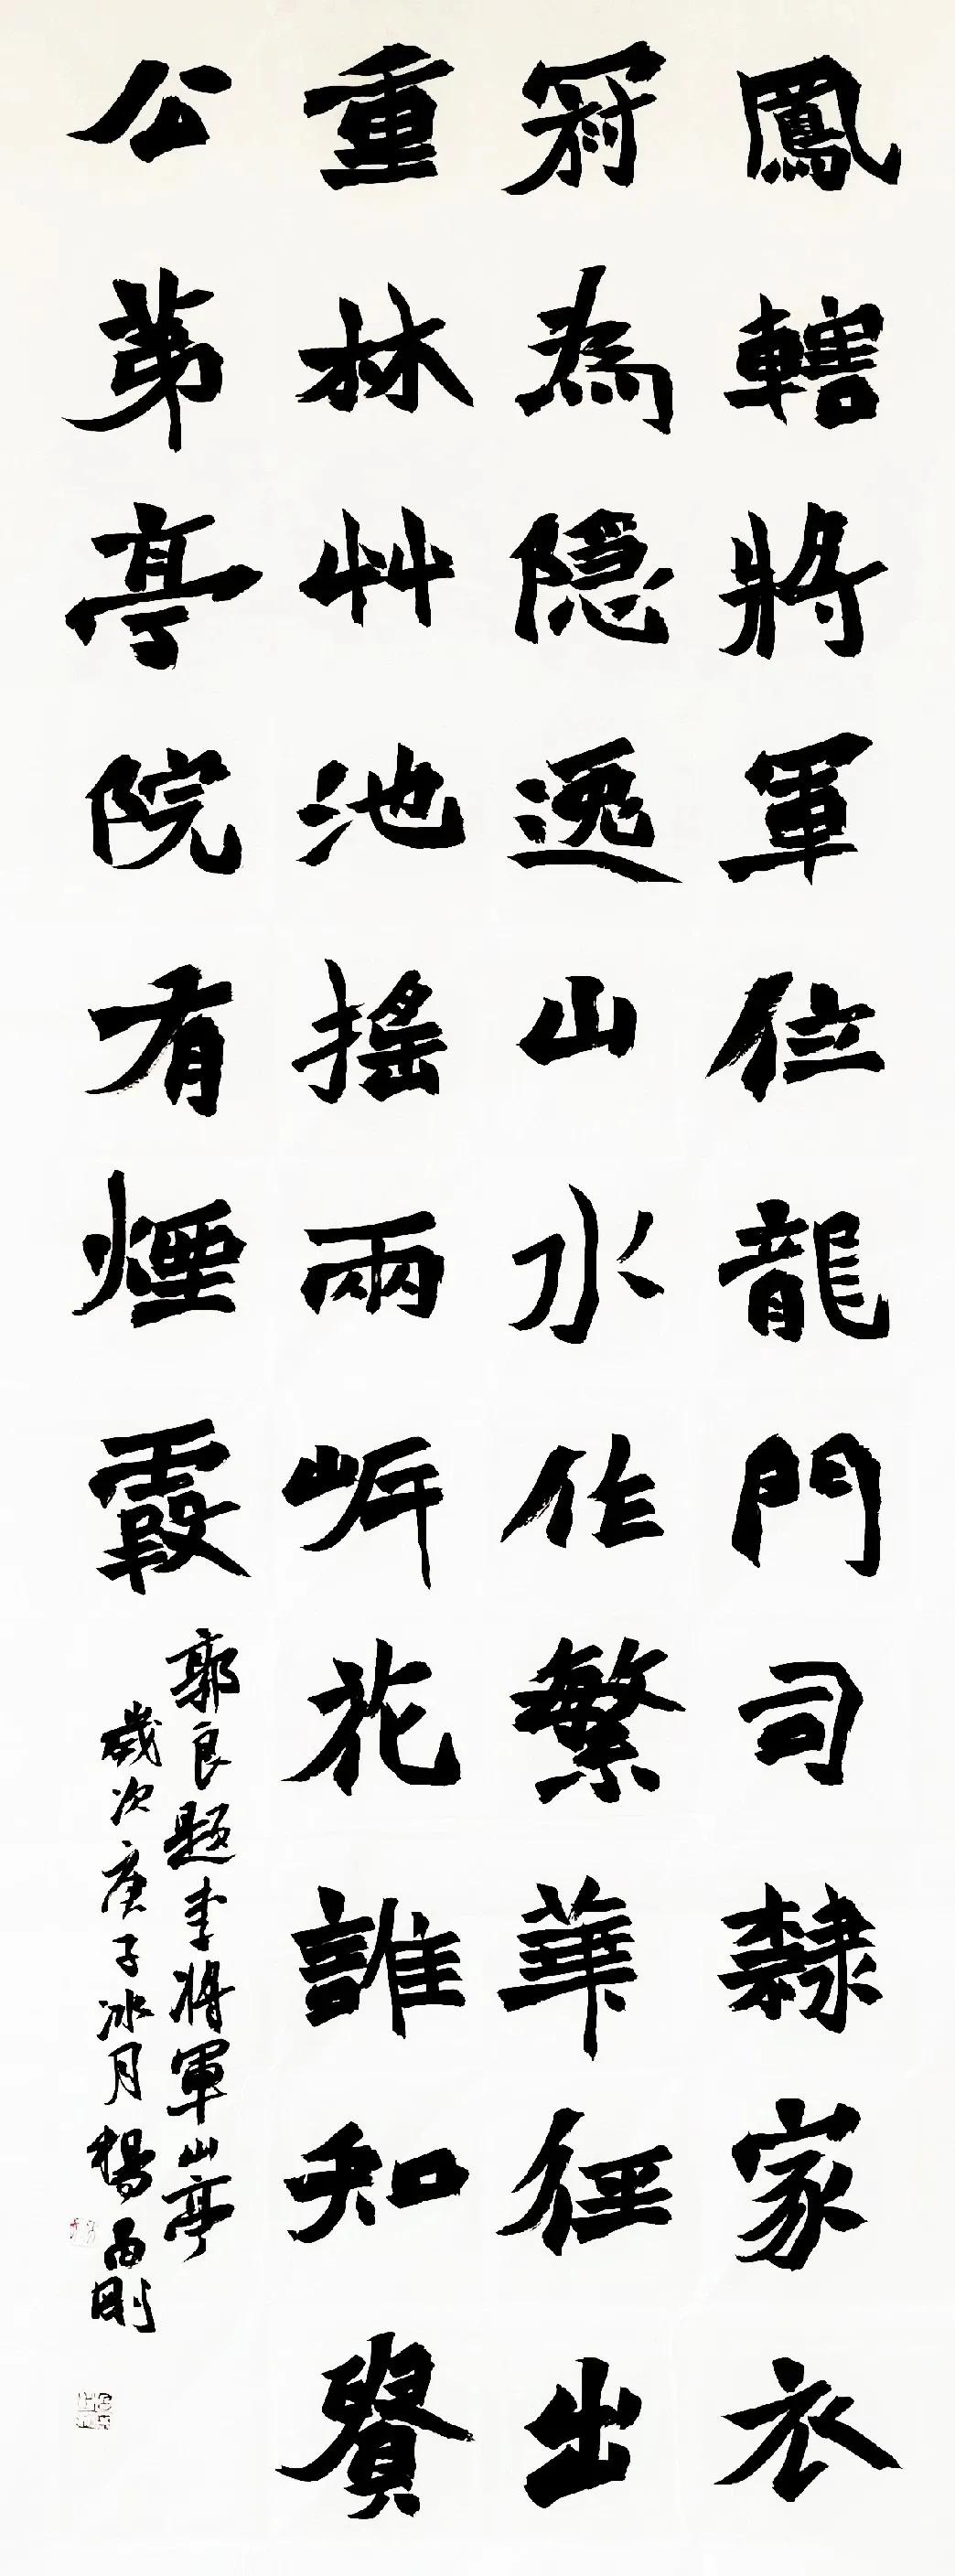 鳳轄將軍位龍門司隸家衣
冠為隱逸山水作繁華徑出
重林艸池搖兩岍花誰知賢
公弟亭院有煙霞
郭良題李將軍山亭
歲次庚子冰月楊西剛